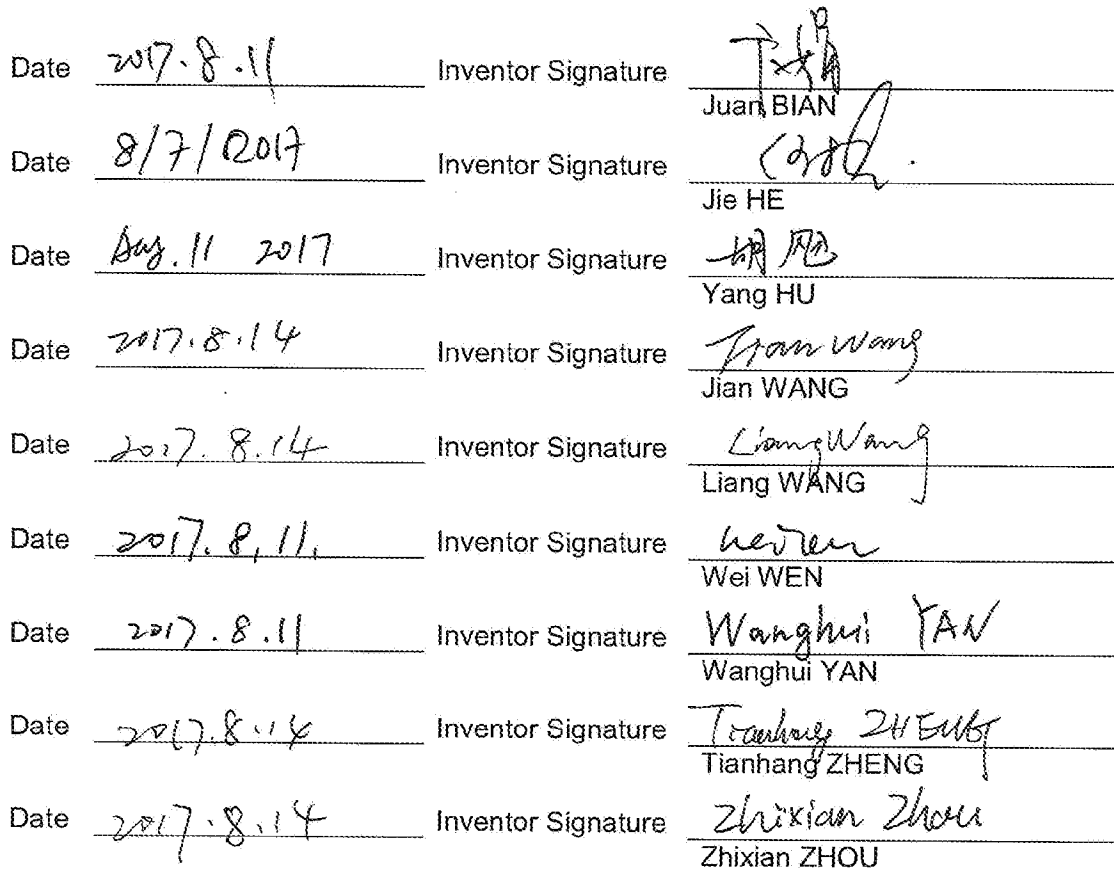 Date 2017.8.11 Inventor Signature 卞娟
Juan BIAN
Date 8/7/2017 Inventor Signature
Jie HE
Date Aug. 11 2017 Inventor Signature 胡飏
Yang HU
Date 2017.8.14 Inventor Signature Jian Wang
Jian WANG
Date 2017.8.14 Inventor Signature Liang Wang
Liang WANG
Date 2017.8.11. Inventor Signature Wei Wen
Wei WEN
Date 2017.8.11 Inventor Signature Wanghui YAN
Wanghui YAN
Date 2017.8.14 Inventor Signature Tianhang ZHENG
Tianhang ZHENG
Date 2017.8.14 Inventor Signature Zhixian Zhou
Zhixian ZHOU